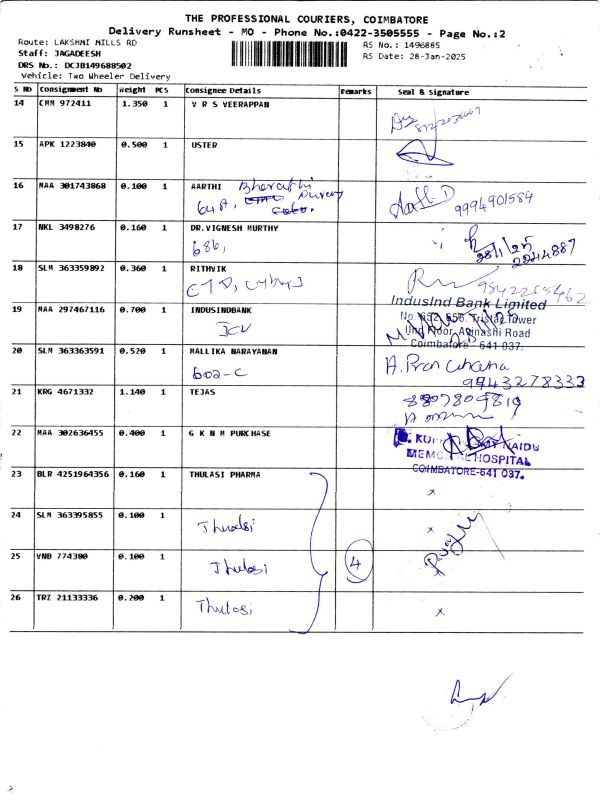 THE PROFESSIONAL COURIERS, COIMBATORE
Delivery Runsheet - MO - Phone No.:0422-3505555 - Page No.:2
Route: LAKSHMI MILLS RD
RS No.: 1496885
Staff: JAGADEESH
RS Date: 28-Jan-2025
DRS No.: DCJB149688502
Vehicle: Two Wheeler Delivery
S No Consignment No Weight PCS Consignee Details Remarks Seal & Signature
14 CMM 972411 1.350 1 V R S VEERAPPAN
15 APK 1223840 0.500 1 USTER
16 MAA 301743868 0.100 1 AARTHI Bharathi
9994901584
17 NKL 3498276 0.160 1 DR.VIGNESH MURTHY
686,
28/1/25
18 SLM 363359892 0.360 1 RITHVIK
19 MAA 297467116 0.700 1 INDUSINDBANK
IndusInd Bank Limited
Tower
Avinashi Road
Coimbatore 641 037.
20 SLM 363363591 0.520 1 MALLIKA NARAYANAN
602-C
9943278333
21 KRG 4671332 1.140 1 TEJAS
8807809819
22 MAA 302636455 0.400 1 G K N M PURCHASE
NAIDU
HOSPITAL
COIMBATORE-641 037.
23 BLR 4251964356 0.160 1 THULASI PHARMA
x
24 SLM 363395855 0.100 1 Thulasi
x
25 VNB 774380 0.100 1 Thulasi 4
x
26 TRZ 21133336 0.200 1 Thulasi
x